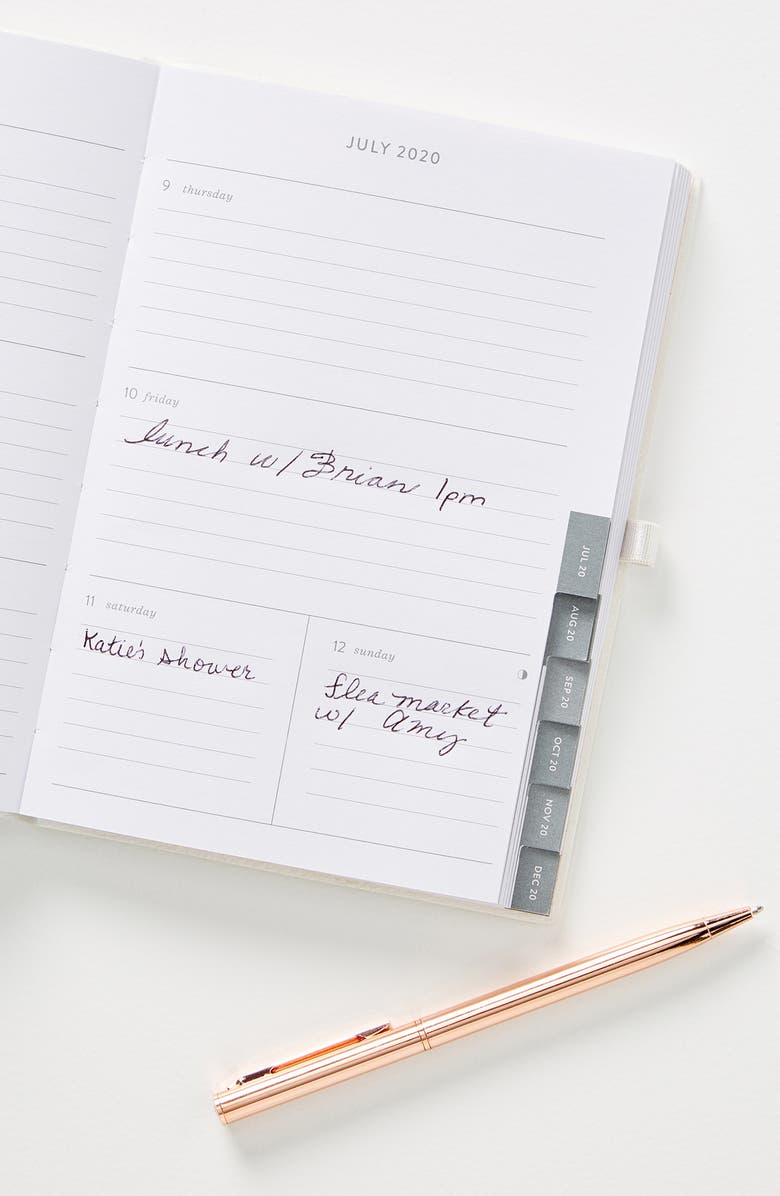 JULY 2020
9 thursday
10 friday
lunch w/ Brian 1pm
11 saturday
Katie's shower
12 sunday
flea market
w/ Amy
JUL 20
AUG 20
SEP 20
OCT 20
NOV 20
DEC 20